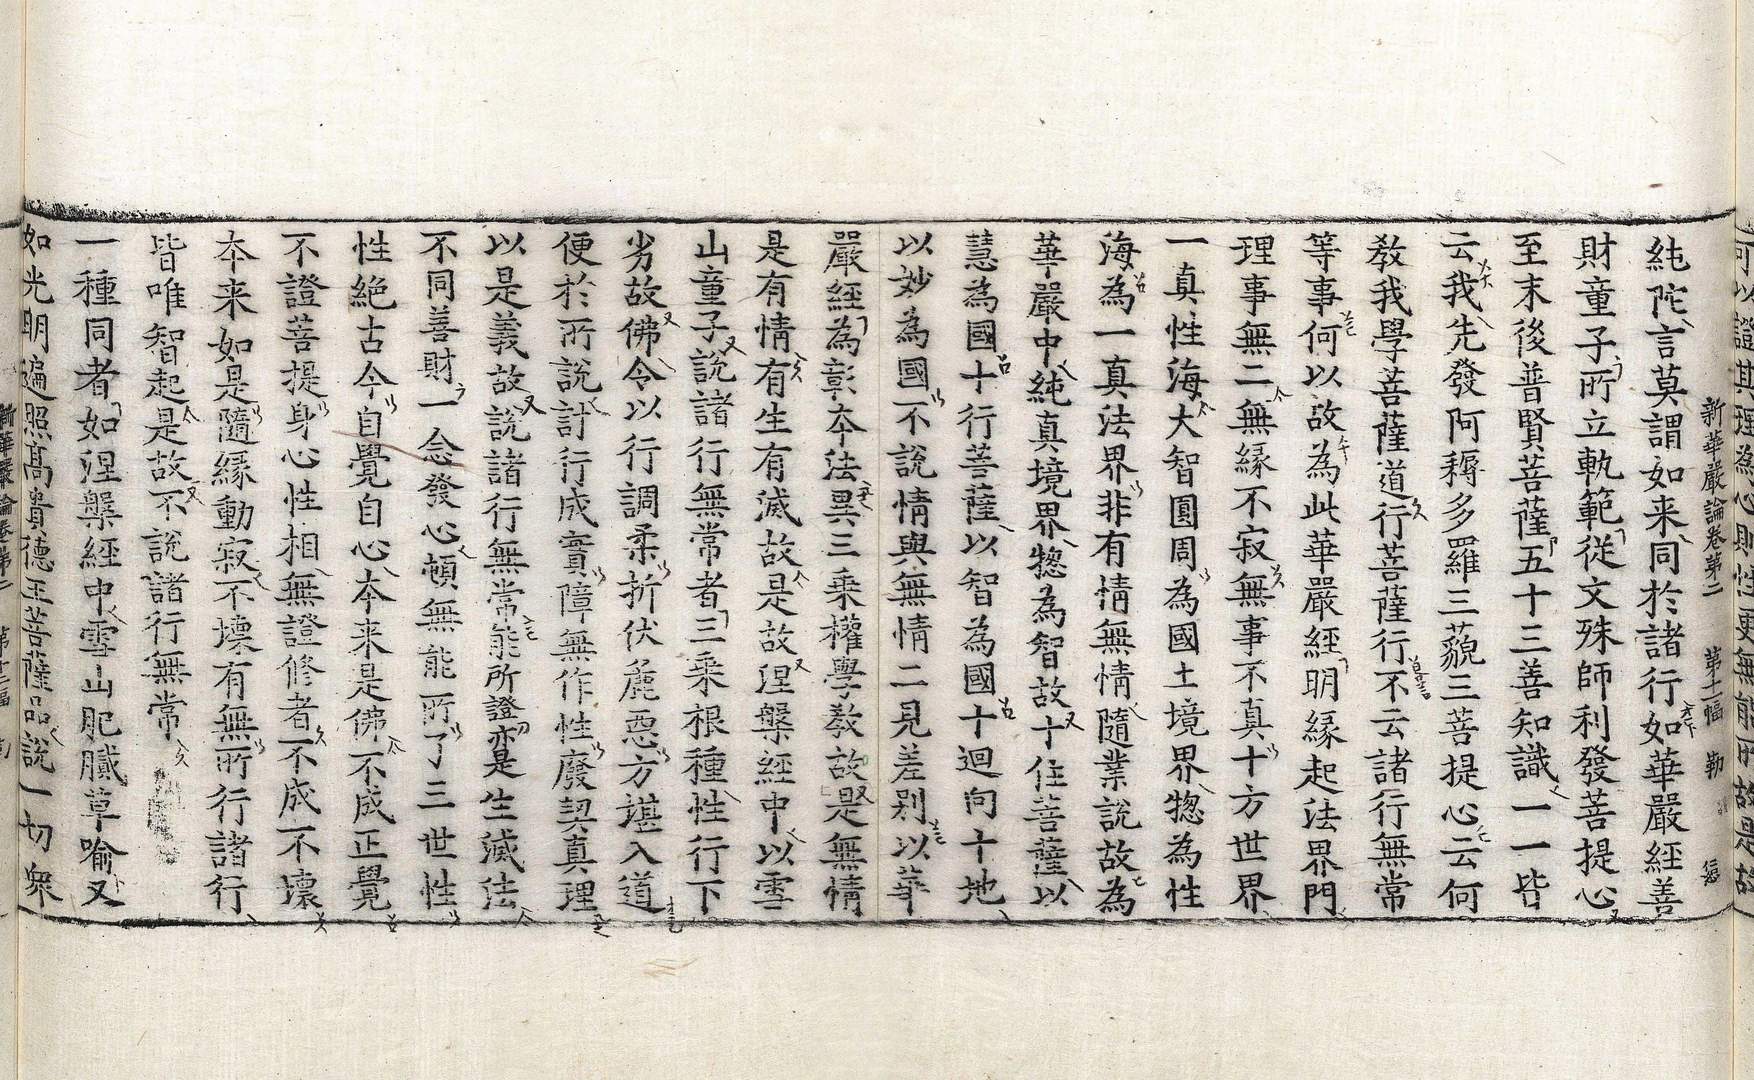 可以證其理為心則悟更無能所故是故
新華嚴論卷第二 第十二幅 勒
純陀言莫謂如来同於諸行如華嚴經善
財童子所立軌範從文殊師利發菩提心
至末後普賢菩薩五十三善知識一一皆
云我先發阿耨多羅三藐三菩提心云何
教我學菩薩道行菩薩行不云諸行無常
等事何以故為此華嚴經明緣起法界門
理事無二無緣不寂無事不真十方世界
一真性海大智圓周為國土境界揔為性
海為一真法界非有情無情隨業說故為
華嚴中純真境界揔為智故十住菩薩以
慧為國十行菩薩以智為國十迴向十地
以妙為國不說情與無情二見差別以華
嚴經為彰本法異三乘權學教故是無情
是有情有生有滅故是故涅槃經中以雪
山童子說諸行無常者三乘根種性行下
劣故佛令以行調柔折伏麁惡方堪入道
便於所說計行成實障無作性廢契真理
以是義故說諸行無常能所證亦是生滅法
不同善財一念發心頓無能所了三世性
性絕古今自覺自心本来是佛不成正覺
不證菩提身心性相無證修者不成不壞
本来如是隨緣動寂不壞有無所行諸行
皆唯智起是故不說諸行無常
一種同者如涅槃經中雪山肥膩草喻又
如光明遍照高貴德王菩薩品說一切眾
新華嚴論卷第二 第十二幅